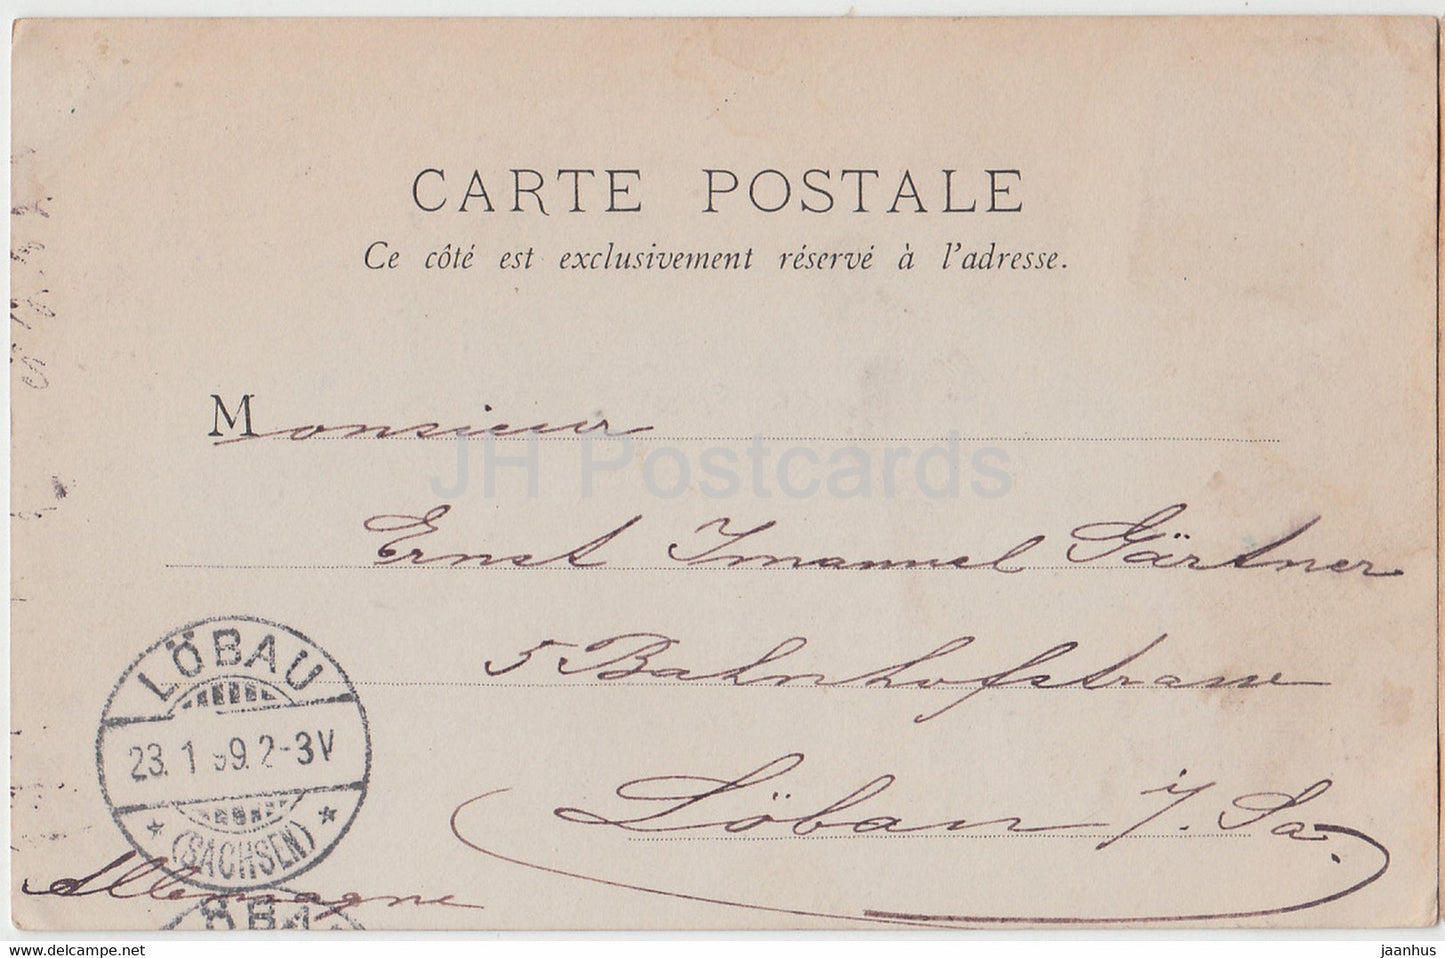 CARTE POSTALE
Ce côté est exclusivement réservé à l'adresse.
Monsieur
JH Postcards
Ernst Imanuel Gärtner
5 Bahnhofstrasse
Löbau i/. Sa.
Allemagne
LÖBAU
23. 1 99. 2-3V
* (SACHSEN) *
https://www.delcampe.net
jaanhus